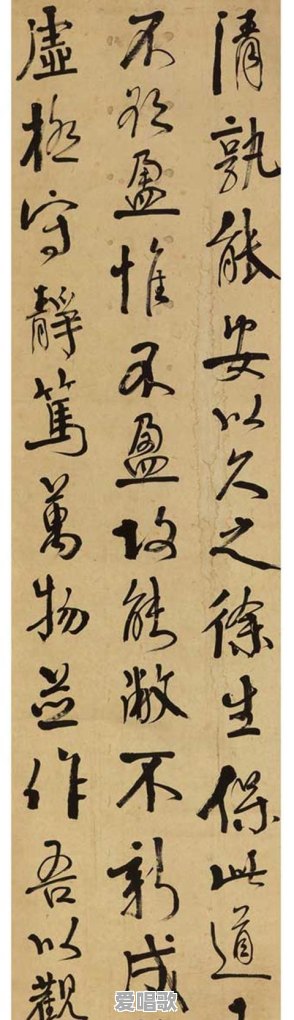 清孰能安以久之徐生保此道
不欲盈惟不盈故能敝不新成
虛極守靜篤萬物並作吾以觀
爱唱歌